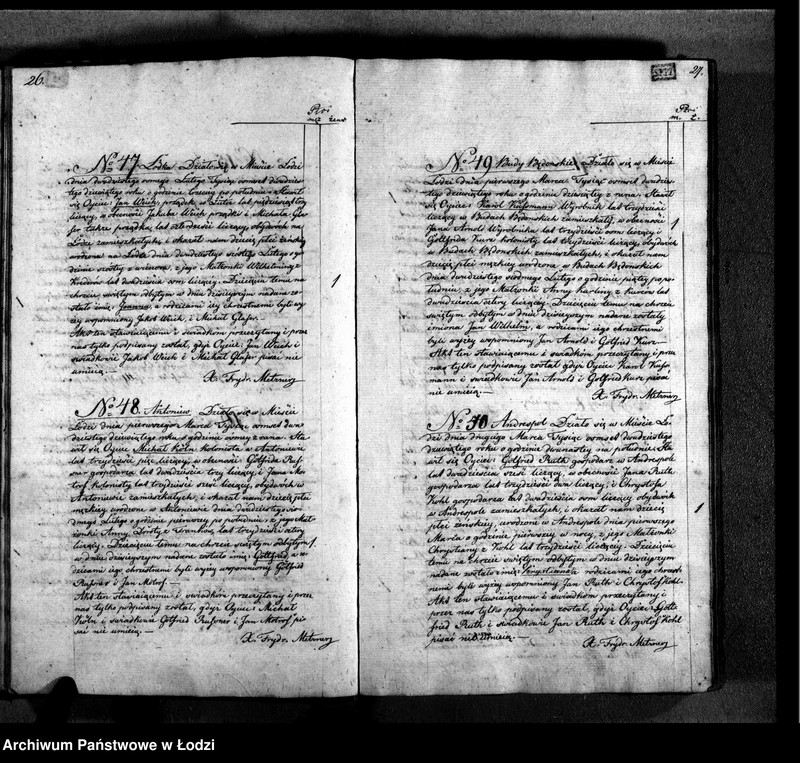 26.
Płci
męz żens
No 47 Łódka Działo się w Mieście Łodzi
dnia dwudziestego osmego Lutego Tysiąc osmset dwudzies-
tego dziewiątego roku o godzinie trzeciej po południu. Stawił
się Oyciec Jan Wuch, prządek w Łodzi lat pięćdziesiąt trzy
liczący, w obecności Jakuba Wuch prządki i Michała Gla-
ser także prządka lat czterdzieści liczący, obydwóch na
Łódce zamieszkałych, i okazał nam dziecię płci żeńskiej
urodzone na Łódce dnia dwudziestego szóstego Lutego o go-
dzinie szóstej z wieczora, z jego Małżonki Wilhelminy z
lat dwadzieścia osm liczącej. Dziecięciu temu na
chrzcie świętym odbytym w dniu dzisiejszym nadane zo-
stało imię, a rodzicami iey chrzestnemi byli wy-
żey wspomniony Jakób Wuch, i Michał Glaser.
Akt ten stawiającemu i świadkom przeczytany i przez
nas tylko podpisany został, gdyż Oyciec Jan Wuch i
świadkowie Jakób Wuch i Michał Glaser pisać nie
umieią.—
X. Frydr. Metzner
1
No 48. Antoniew Działo się w Mieście
Łodzi dnia pierwszego Marca Tysiąc osmset dwu-
dziestego dziewiątego roku o godzinie osmey z rana. Sta-
wił się Oyciec Michał Köln kolonista w Antoniewie
lat trzydzieści pięć liczący w obecności Gottfrida Raf-
ner gospodarza lat dwadzieścia trzy liczący i Jana Mo-
trof kolonisty lat trzydzieści sześć liczący, obydwóch w
Antoniewie zamieszkałych, i okazał nam dziecię płci
męzkiey urodzone w Antoniewie dnia dwudziestego sió-
dmego Lutego o godzinie pierwszey po południu, z jego Mał-
żonki Anny Doroty z Tranków lat trzydzieści cztery
liczącey. Dziecięciu temu na chrzcie świętym odbytym
w dniu dzisieyszym nadane zostało imię Gottfried, a ro-
dzicami iego chrzestnemi byli wyżey wspomniony Gotfrid
Rafsner i Jan Motrof.—
Akt ten stawiaiącemu i świadkom przeczytany i przez
nas tylko podpisany został, gdyż Oyciec Michał
Köln i świadkowie Gotfried Rafsner i Jan Motrof pi-
sać nie umieią.—
X. Frydr. Metzner
1
27.
Płci
m. ż.
No 49 Budy Będonskie Działo się w Mieście
Łodzi dnia pierwszego Marca Tysiąc osmset dwudzies-
tego dziewiątego roku o godzinie dziewiątey z rana. Stawił
się Oyciec Karol Kufsmann Wyrobnik lat trzydzieści
liczący w Budach Będonskich zamieszkały, w obecności
Jana Arnold Wyrobnika lat trzydzieści osm liczący i
Gottfrida Kurc kolonisty lat trzydzieści liczący, obydwóch
w Budach Będonskich zamieszkałych, i okazał nam
dziecię płci męzkiey urodzone w Budach Będonskich
dnia dwudziestego siódmego Lutego o godzinie piątey po po-
łudniu, z jego Małżonki Anny Karliny z Kurców lat
dwadzieścia cztery liczącey. Dziecięciu temu na chrzcie
świętym odbytym w dniu dzisieyszym nadane zostały
imiona Jan Wilhelm, a rodzicami iego chrzestnemi
byli wyżey wspomniony Jan Arnold i Gotfrid Kurc—
Akt ten stawiaiącemu i świadkom przeczytany i przez
nas tylko podpisany został, gdyż Oyciec Karol Kufs-
mann i świadkowie Jan Arnold i Gotfrid Kurc pisać
nie umieią.—
X. Frydr. Metzner
1
No 50 Andrespol Działo się w Mieście Ło-
dzi dnia drugiego Marca Tysiąc osmset dwudziestego
dziewiątego roku o godzinie dwunastey na południe. Sta-
wił się Oyciec Gotfrid Ruth gospodarz w Andrespolu
lat dwadzieścia sześć liczący, w obecności Jana Ruth
gospodarza lat trzydzieści dwa liczący, i Chrystofa
Kohl gospodarza lat dwadzieścia osm liczący obydwóch
w Andrespolu zamieszkałych, i okazał nam dziecię
płci żeńskiey, urodzone w Andrespolu dnia pierwszego
Marca o godzinie pierwszey w nocy, z jego Małżonki
Chrystiany z Kohl lat trzydzieści liczącey. Dziecięciu
temu na chrzcie świętym odbytym w dniu dzisieyszym
nadane zostało imię, rodzicami iego chrzest-
nemi byli wyżey wspomniony Jan Ruth i Chrystof Kohl.
Akt ten stawiaiącemu i świadkom przeczytany i
przez nas tylko podpisany został, gdyż Oyciec Gott-
fried Ruth i świadkowie Jan Ruth i Chrystof Kohl
pisać nie umieią.—
X. Frydr. Metzner
1
Archiwum Państwowe w Łodzi